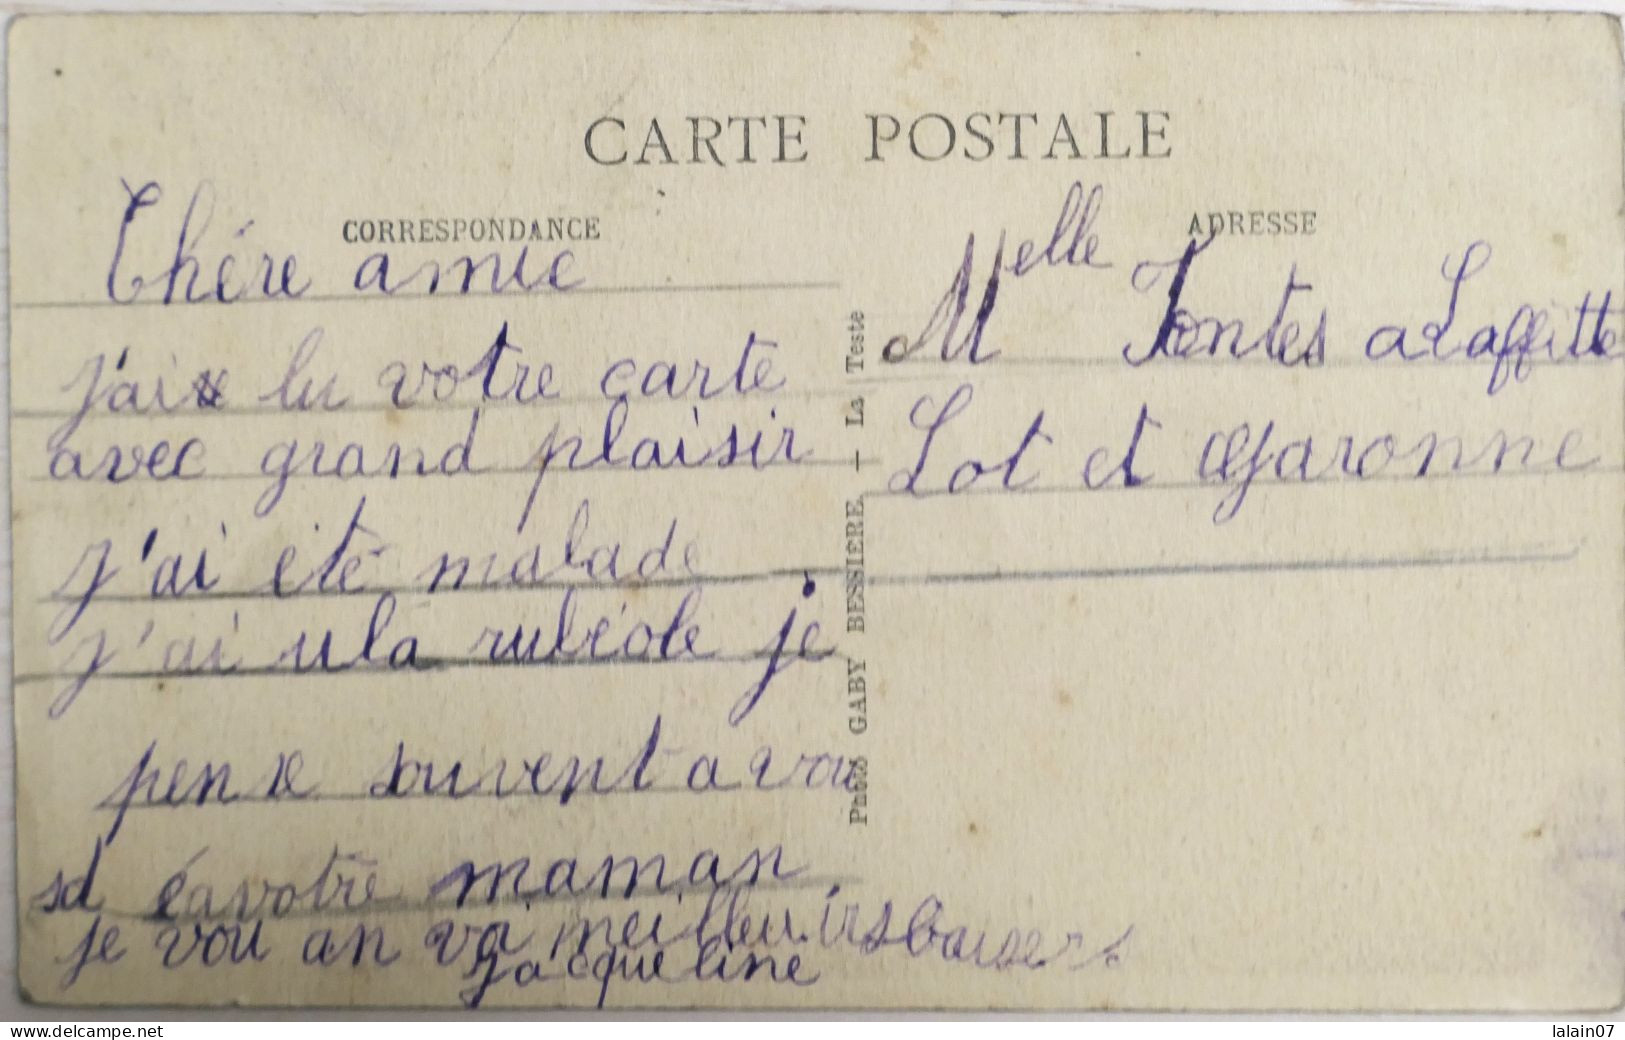 CARTE POSTALE
CORRESPONDANCE
Chére amie
j'ai lu votre carte
avec grand plaisir
j'ai été malade
j'ai u la rubéole je
pense souvent a vou
sd éa votre maman
je vou an vai meilleuirs baisers
Jacqueline
Photo GABY BESSIERE + La Teste
ADRESSE
Melle Fontes a Laffitte
Lot et Garonne
www.delcampe.net
lalain07